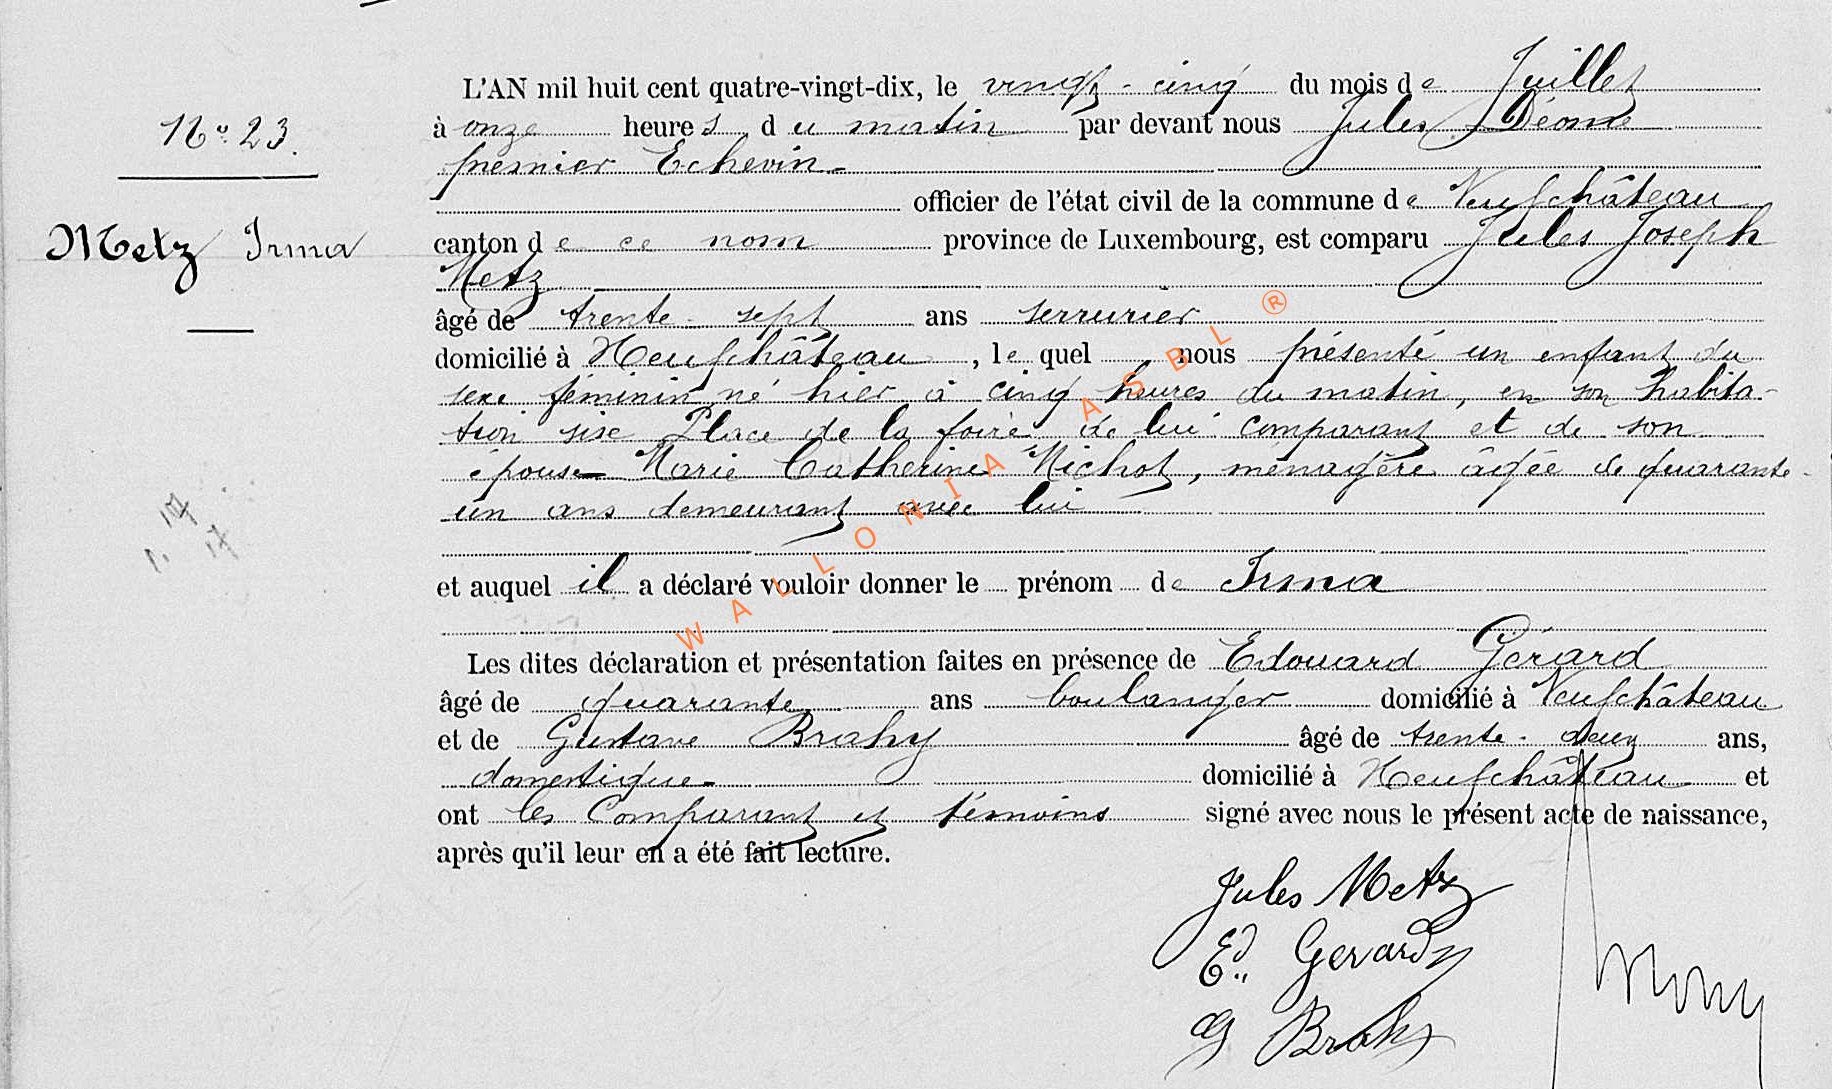 L'AN mil huit cent quatre-vingt-dix, le vingt-cinq du mois de Juillet
N° 23. à onze heures du matin par devant nous Jules Déome
premier Echevin
officier de l'état civil de la commune de Neufchâteau
Metz Irma canton de ce nom province de Luxembourg, est comparu Jules Joseph
Metz
âgé de trente-sept ans serrurier
domicilié à Neufchâteau, lequel nous présenté un enfant du
sexe féminin né hier à cinq heures du matin, en son habita-
tion sise Place de la foire de lui comparant et de son
épouse Marie Catherine Michot, ménagère âgée de quarante-
un ans demeurant avec lui
et auquel il a déclaré vouloir donner le prénom de Irma
Les dites déclaration et présentation faites en présence de Edouard Gérard
âgé de quarante ans boulanger domicilié à Neufchâteau
et de Gustave Brahy âgé de trente-deux ans,
domestique domicilié à Neufchâteau et
ont les Comparant et témoins signé avec nous le présent acte de naissance,
après qu'il leur en a été fait lecture.
Jules Metz
Ed Gerard
G Brahy
WALLONIA ASBL ®